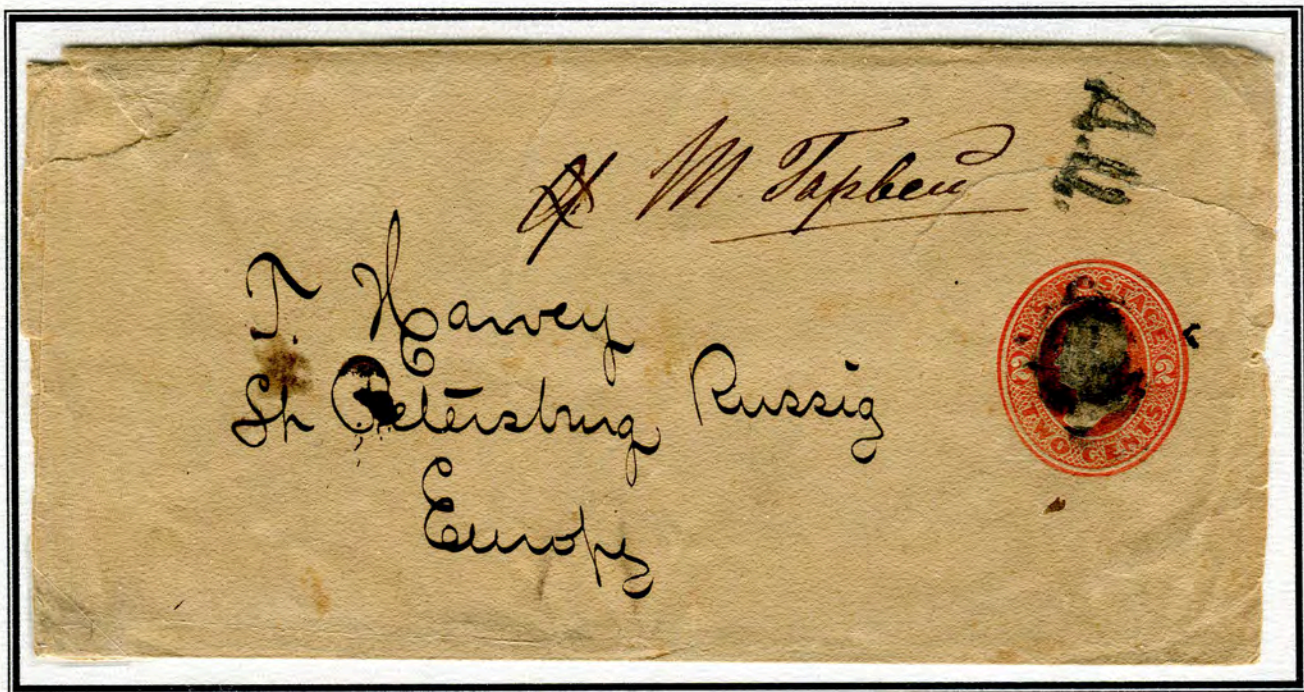 Т. Гарвей
Д.Ц.
T. Harvey
St Petersburg Russia
Europe
U.S. POSTAGE
2 2
TWO CENTS